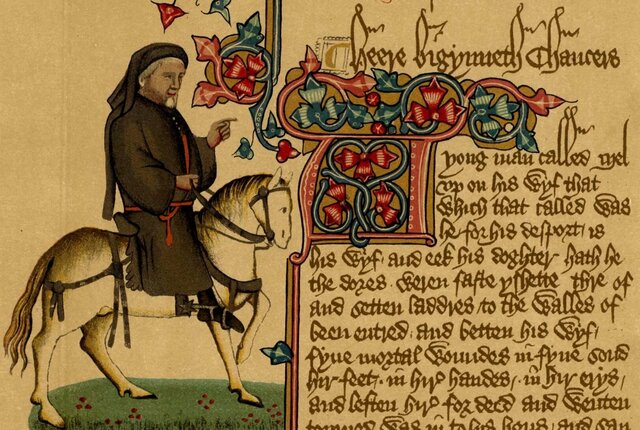 Heere bigynneth Chaucers
A yong man called Mel
vp on his wyf that
which that called was
he for his desport / is
his wyf / and eek his doghter hath he
the dores weren faste yshette thre of
and setten laddres / to the walles of
been entred / and betten his wyf /
fyue mortal woundes in fyue sond
hir feet / in hir handes / in hir erys /
and leften hir for deed and wenten
torned was in to his hous / and sau